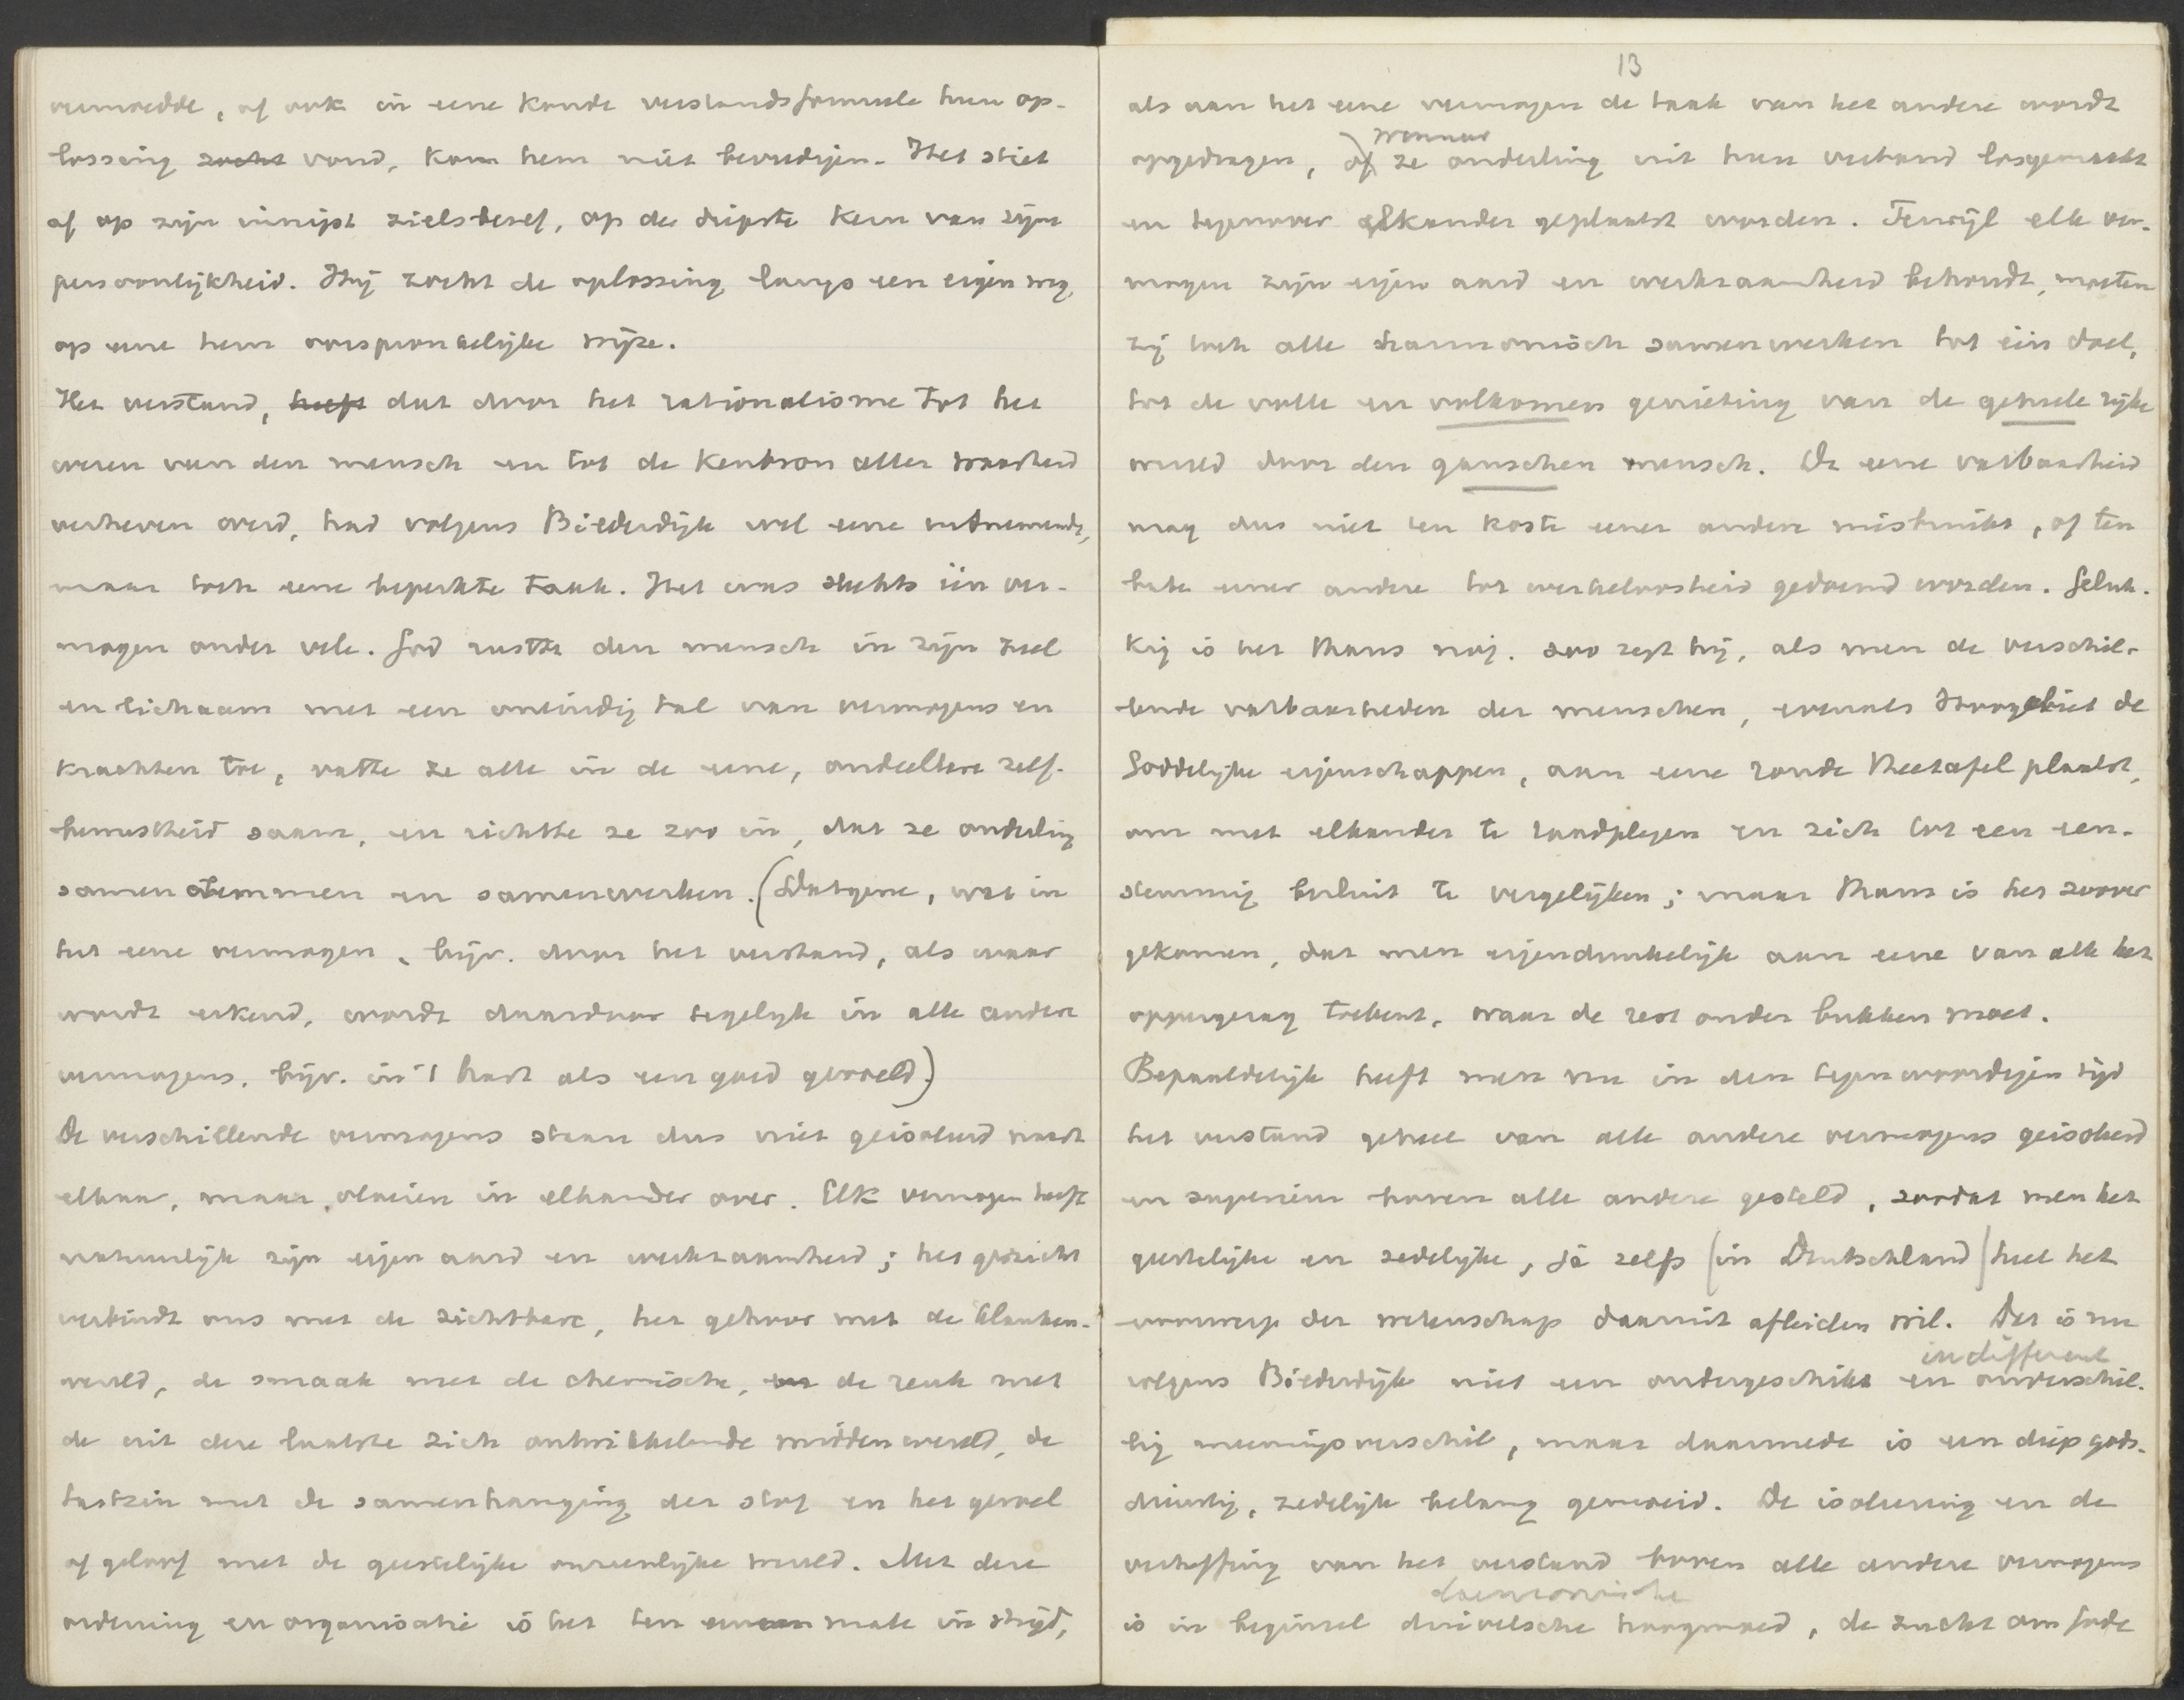 vermoedde, of ook in eene koude verstandsformule hun op-
lossing zocht vond, kon hem niet bevredigen. Het stiet
af op zijn innigst zielsbesef, op de diepste kern van zijn
persoonlijkheid. Hij zocht de oplossing langs een eigen weg,
op eene hem oorspronkelijke wijze.
Het verstand, heeft dat door het rationalisme tot het
wezen van den mensch en tot de kenbron aller waarheid
verheven werd, had volgens Bilderdijk wel eene uitnemende,
maar toch eene beperkte taak. Het was slechts één ver-
mogen onder vele. God rustte den mensch in zijn ziel
en lichaam met een oneindig tal van vermogens en
krachten toe, vatte ze alle in de eene, ondeelbare zelf-
bewustheid saam, en richtte ze zoo in, dat ze onderling
samenstemmen en samenwerken. (Datgene, wat in
het eene vermogen, bijv. door het verstand, als waar
wordt erkend, wordt daardoor tegelijk in alle andere
vermogens, bijv. in 't hart als een goed gevoeld.)
De verschillende vermogens staan dus niet geisoleerd naast
elkaar, maar vloeien in elkander over. Elk vermogen heeft
natuurlijk zijn eigen aard en werkzaamheid; het gezicht
verbindt ons met de zichtbare, het gehoor met de klanken-
wereld, de smaak met de chemische, en de reuk met
de uit deze laatste zich ontwikkelende middenwereld, de
tastzin met de samenhanging der stof en het gevoel
of geloof met de geestelijke onzienlijke wereld. Met deze
ordening en organisatie is het ten eenen male in strijd,
13
als aan het eene vermogen de taak van het andere wordt
wanneer
opgedragen, of ze onderling uit hun verband losgemaakt
en tegenover elkander geplaatst worden. Terwijl elk ver-
mogen zijn eigen aard en werkzaamheid behoudt, moeten
zij toch alle harmonisch samenwerken tot één doel,
tot de volle en volkomen genieting van de geheele rijke
wereld door den ganschen mensch. De eene vatbaarheid
mag dus niet ten koste eener andere misbruikt, of ten
bate eener andere tot werkeloosheid gedoemd worden. Geluk-
kig is het thans nog, zoo zegt hij, als men de verschil-
lende vatbaarheden der menschen, evenals Hoogvliet de
Goddelijke eigenschappen, aan eene ronde theetafel plaatst,
om met elkander te raadplegen en zich tot een een-
stemmig besluit te vergelijken; maar thans is het zoover
gekomen, dat men eigendunkelijk aan eene van alle het
oppergezag toekent, waar de rest onder bukken moet.
Bepaaldelijk heeft men nu in den tegenwoordigen tijd
het verstand geheel van alle andere vermogens geisoleerd
en superieur boven alle andere gesteld, zoodat men het
geestelijke en zedelijke, ja zelfs (in Deutschland) heel het
voorwerp der wetenschap daaruit afleiden wil. Dit is nu
indifferent
volgens Bilderdijk niet een ondergeschikt en onverschil-
lig meeningsverschil, maar daarmede is een diep gods-
dienstig, zedelijk belang gemoeid. De isoleering en de
verheffing van het verstand boven alle andere vermogens
daemonische
is in beginsel duivelsche hoogmoed, de zucht om Gode